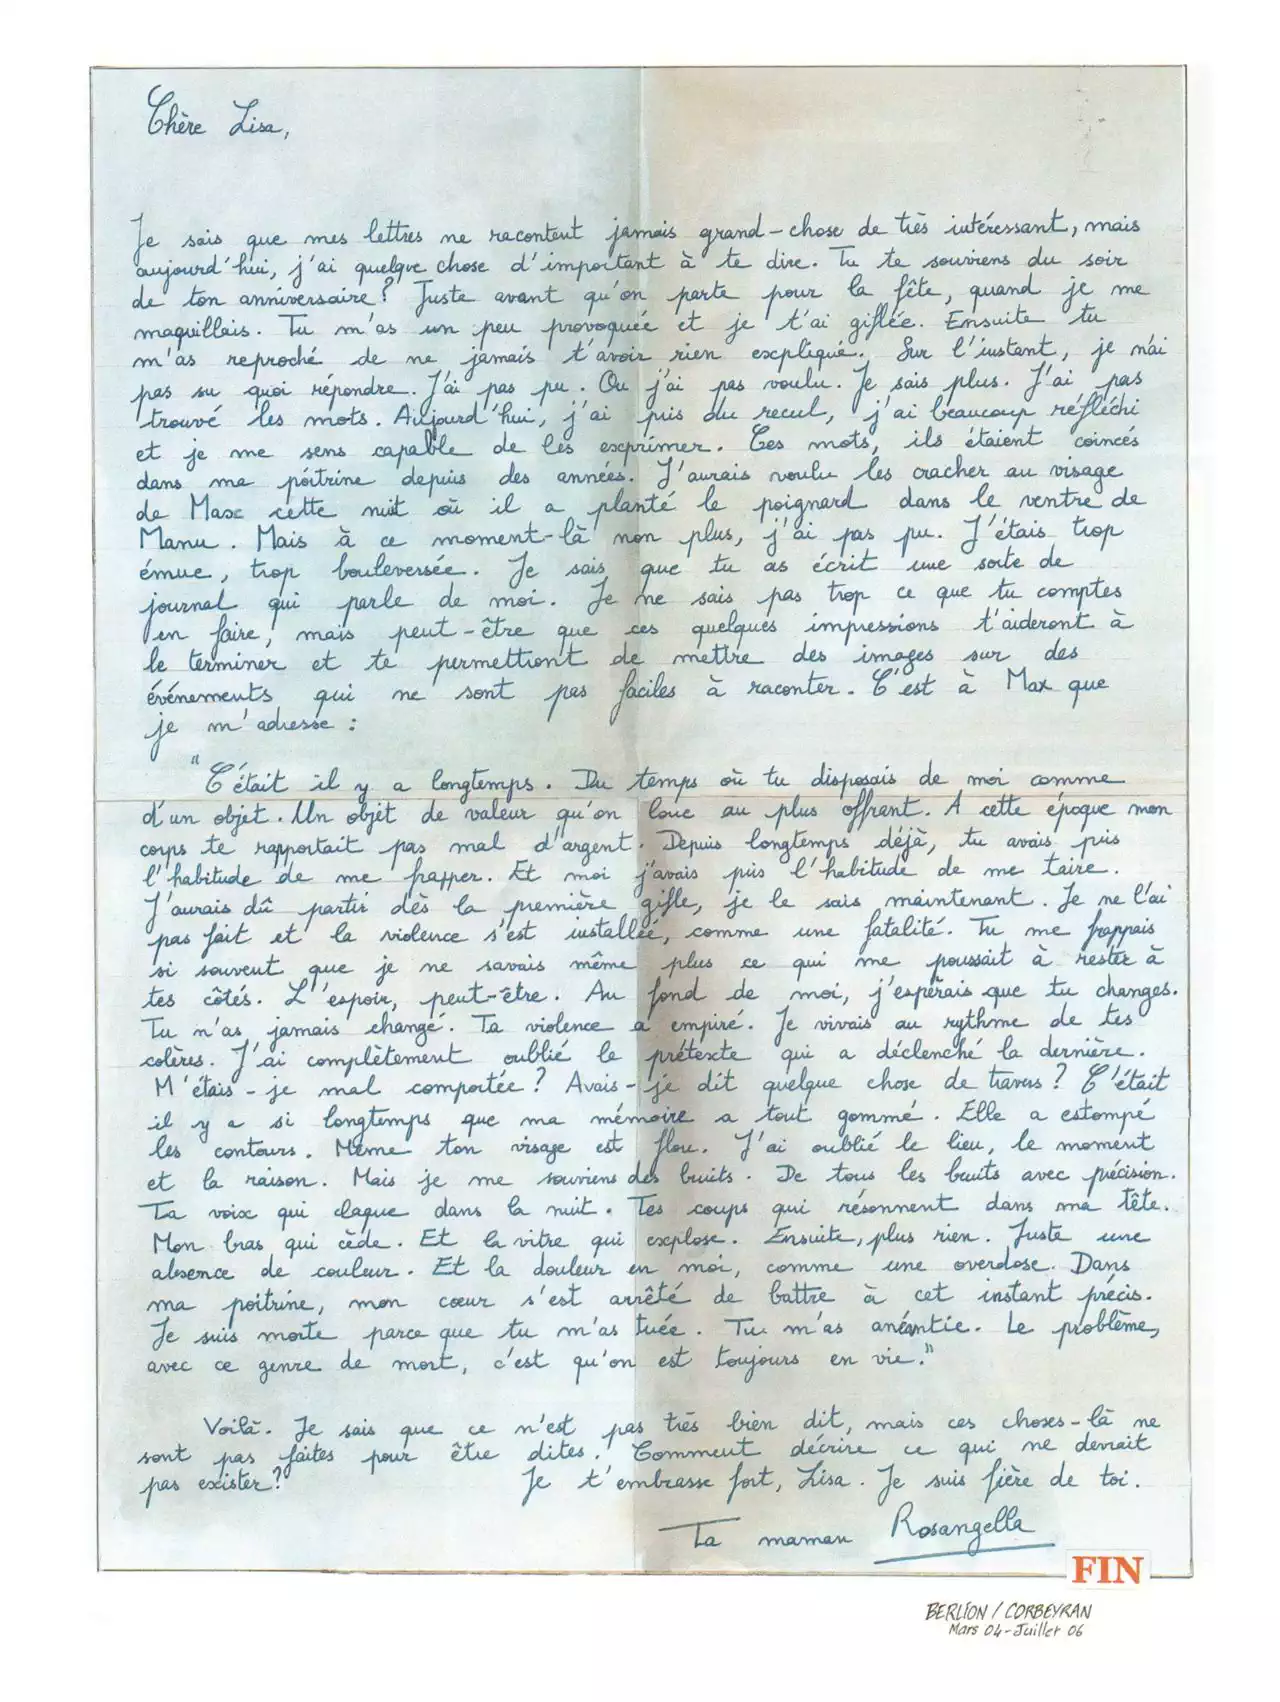 Chère Lisa,
Je sais que mes lettres ne racontent jamais grand-chose de très intéressant, mais
aujourd'hui, j'ai quelque chose d'important à te dire. Tu te souviens du soir
de ton anniversaire? Juste avant qu'on parte pour la fête, quand je me
maquillais. Tu m'as un peu provoquée et je t'ai giflée. Ensuite tu
m'as reproché de ne jamais t'avoir rien expliqué. Sur l'instant, je n'ai
pas su quoi répondre. J'ai pas pu. Ou j'ai pas voulu. Je sais plus. J'ai pas
trouvé les mots. Aujourd'hui, j'ai pris du recul, j'ai beaucoup réfléchi
et je me sens capable de les exprimer. Ces mots, ils étaient coincés
dans ma poitrine depuis des années. J'aurais voulu les cracher au visage
de Max cette nuit où il a planté le poignard dans le ventre de
Manu. Mais à ce moment-là non plus, j'ai pas pu. J'étais trop
émue, trop bouleversée. Je sais que tu as écrit une sorte de
journal qui parle de moi. Je ne sais pas trop ce que tu comptes
en faire, mais peut-être que ces quelques impressions t'aideront à
le terminer et te permettront de mettre des images sur des
événements qui ne sont pas faciles à raconter. C'est à Max que
je m'adresse :
"C'était il y a longtemps. Du temps où tu disposais de moi comme
d'un objet. Un objet de valeur qu'on loue au plus offrant. A cette époque mon
corps te rapportait pas mal d'argent. Depuis longtemps déjà, tu avais pris
l'habitude de me frapper. Et moi j'avais pris l'habitude de me taire.
J'aurais dû partir dès la première gifle, je le sais maintenant. Je ne l'ai
pas fait et la violence s'est installée, comme une fatalité. Tu me frappais
si souvent que je ne savais même plus ce qui me poussait à rester à
tes côtés. L'espoir, peut-être. Au fond de moi, j'espérais que tu changes.
Tu n'as jamais changé. Ta violence a empiré. Je vivais au rythme de tes
colères. J'ai complètement oublié le prétexte qui a déclenché la dernière.
M'étais-je mal comportée? Avais-je dit quelque chose de travers? C'était
il y a si longtemps que ma mémoire a tout gommé. Elle a estompé
les contours. Même ton visage est flou. J'ai oublié le lieu, le moment
et la raison. Mais je me souviens des bruits. De tous les bruits avec précision.
Ta voix qui claque dans la nuit. Tes coups qui résonnent dans ma tête.
Mon bras qui cède. Et la vitre qui explose. Ensuite, plus rien. Juste une
absence de couleur. Et la douleur en moi, comme une overdose. Dans
ma poitrine, mon cœur s'est arrêté de battre à cet instant précis.
Je suis morte parce que tu m'as tuée. Tu m'as anéantie. Le problème,
avec ce genre de mort, c'est qu'on est toujours en vie."
Voilà. Je sais que ce n'est pas très bien dit, mais ces choses-là ne
sont pas faites pour être dites. Comment décrire ce qui ne devrait
pas exister? Je t'embrasse fort, Lisa. Je suis fière de toi.
Ta maman Rosangella
FIN
BERLION/CORBEYRAN
Mars 04-Juillet 06